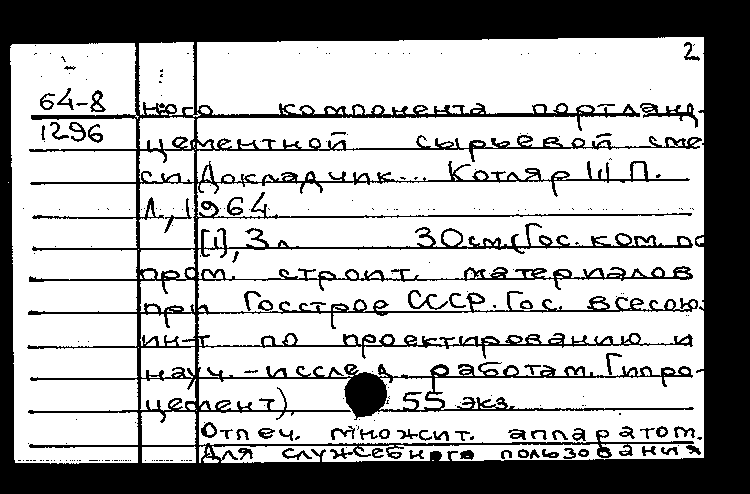 2
64-8 ного компонента портланд-
1296 цементной сырьевой сме
си. Докладчик... Котляр Ш.П.
Л., 1964.
[1], 3 л. 30см. (Гос. ком. по
пром. строит. материалов
при Госстрое СССР. Гос. всесоюз.
ин-т по проектированию и
науч.-исслед. работам. Гипро-
цемент). 55 экз.
Отпеч. множит. аппаратом.
Для служебного пользования